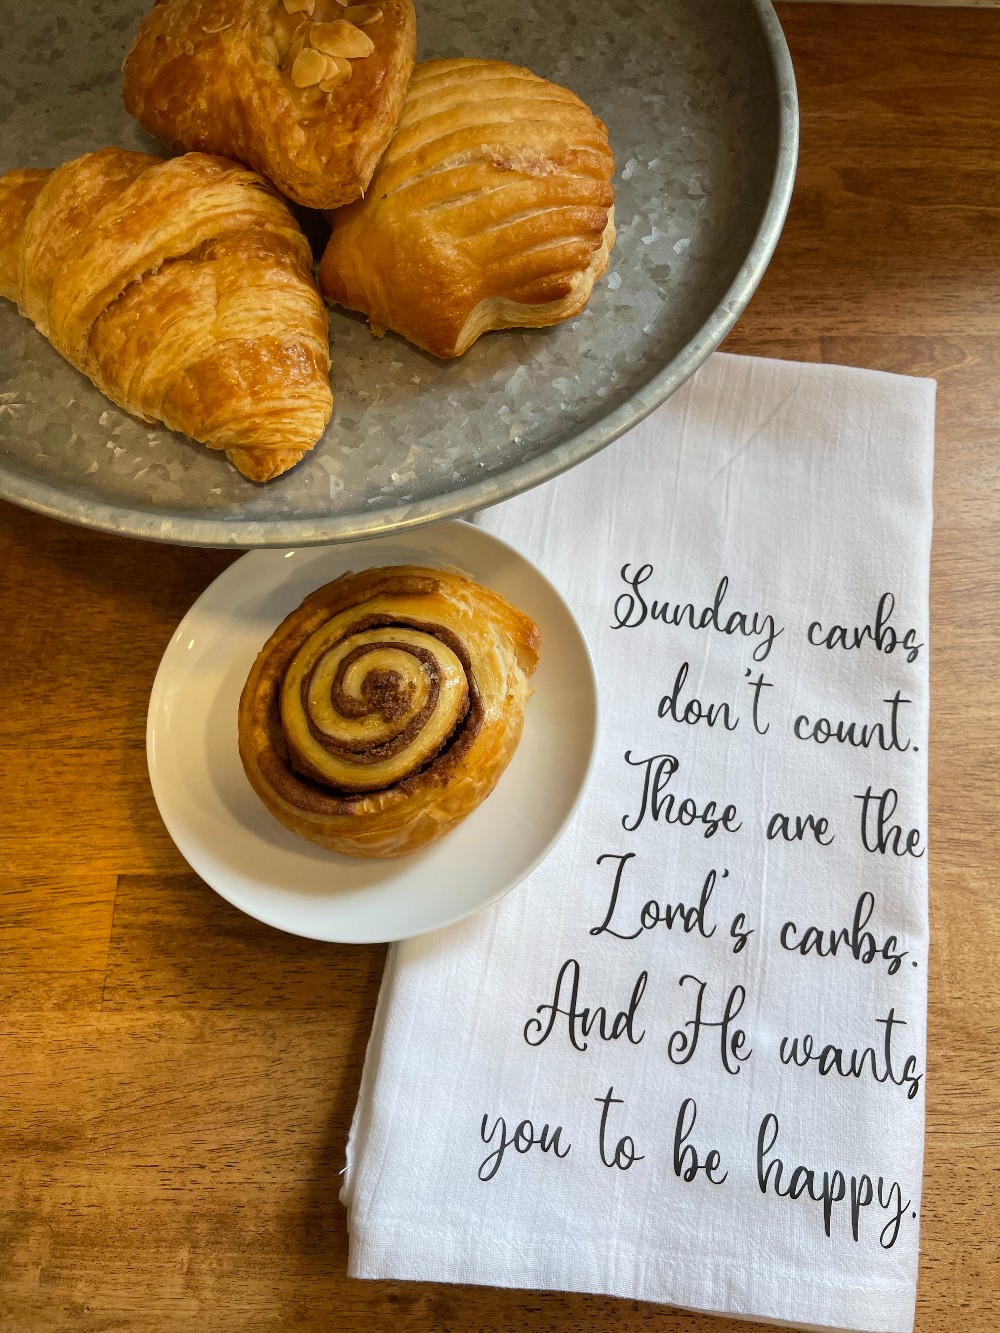 Sunday carbs
don't count.
Those are the
Lord's carbs.
And He wants
you to be happy.